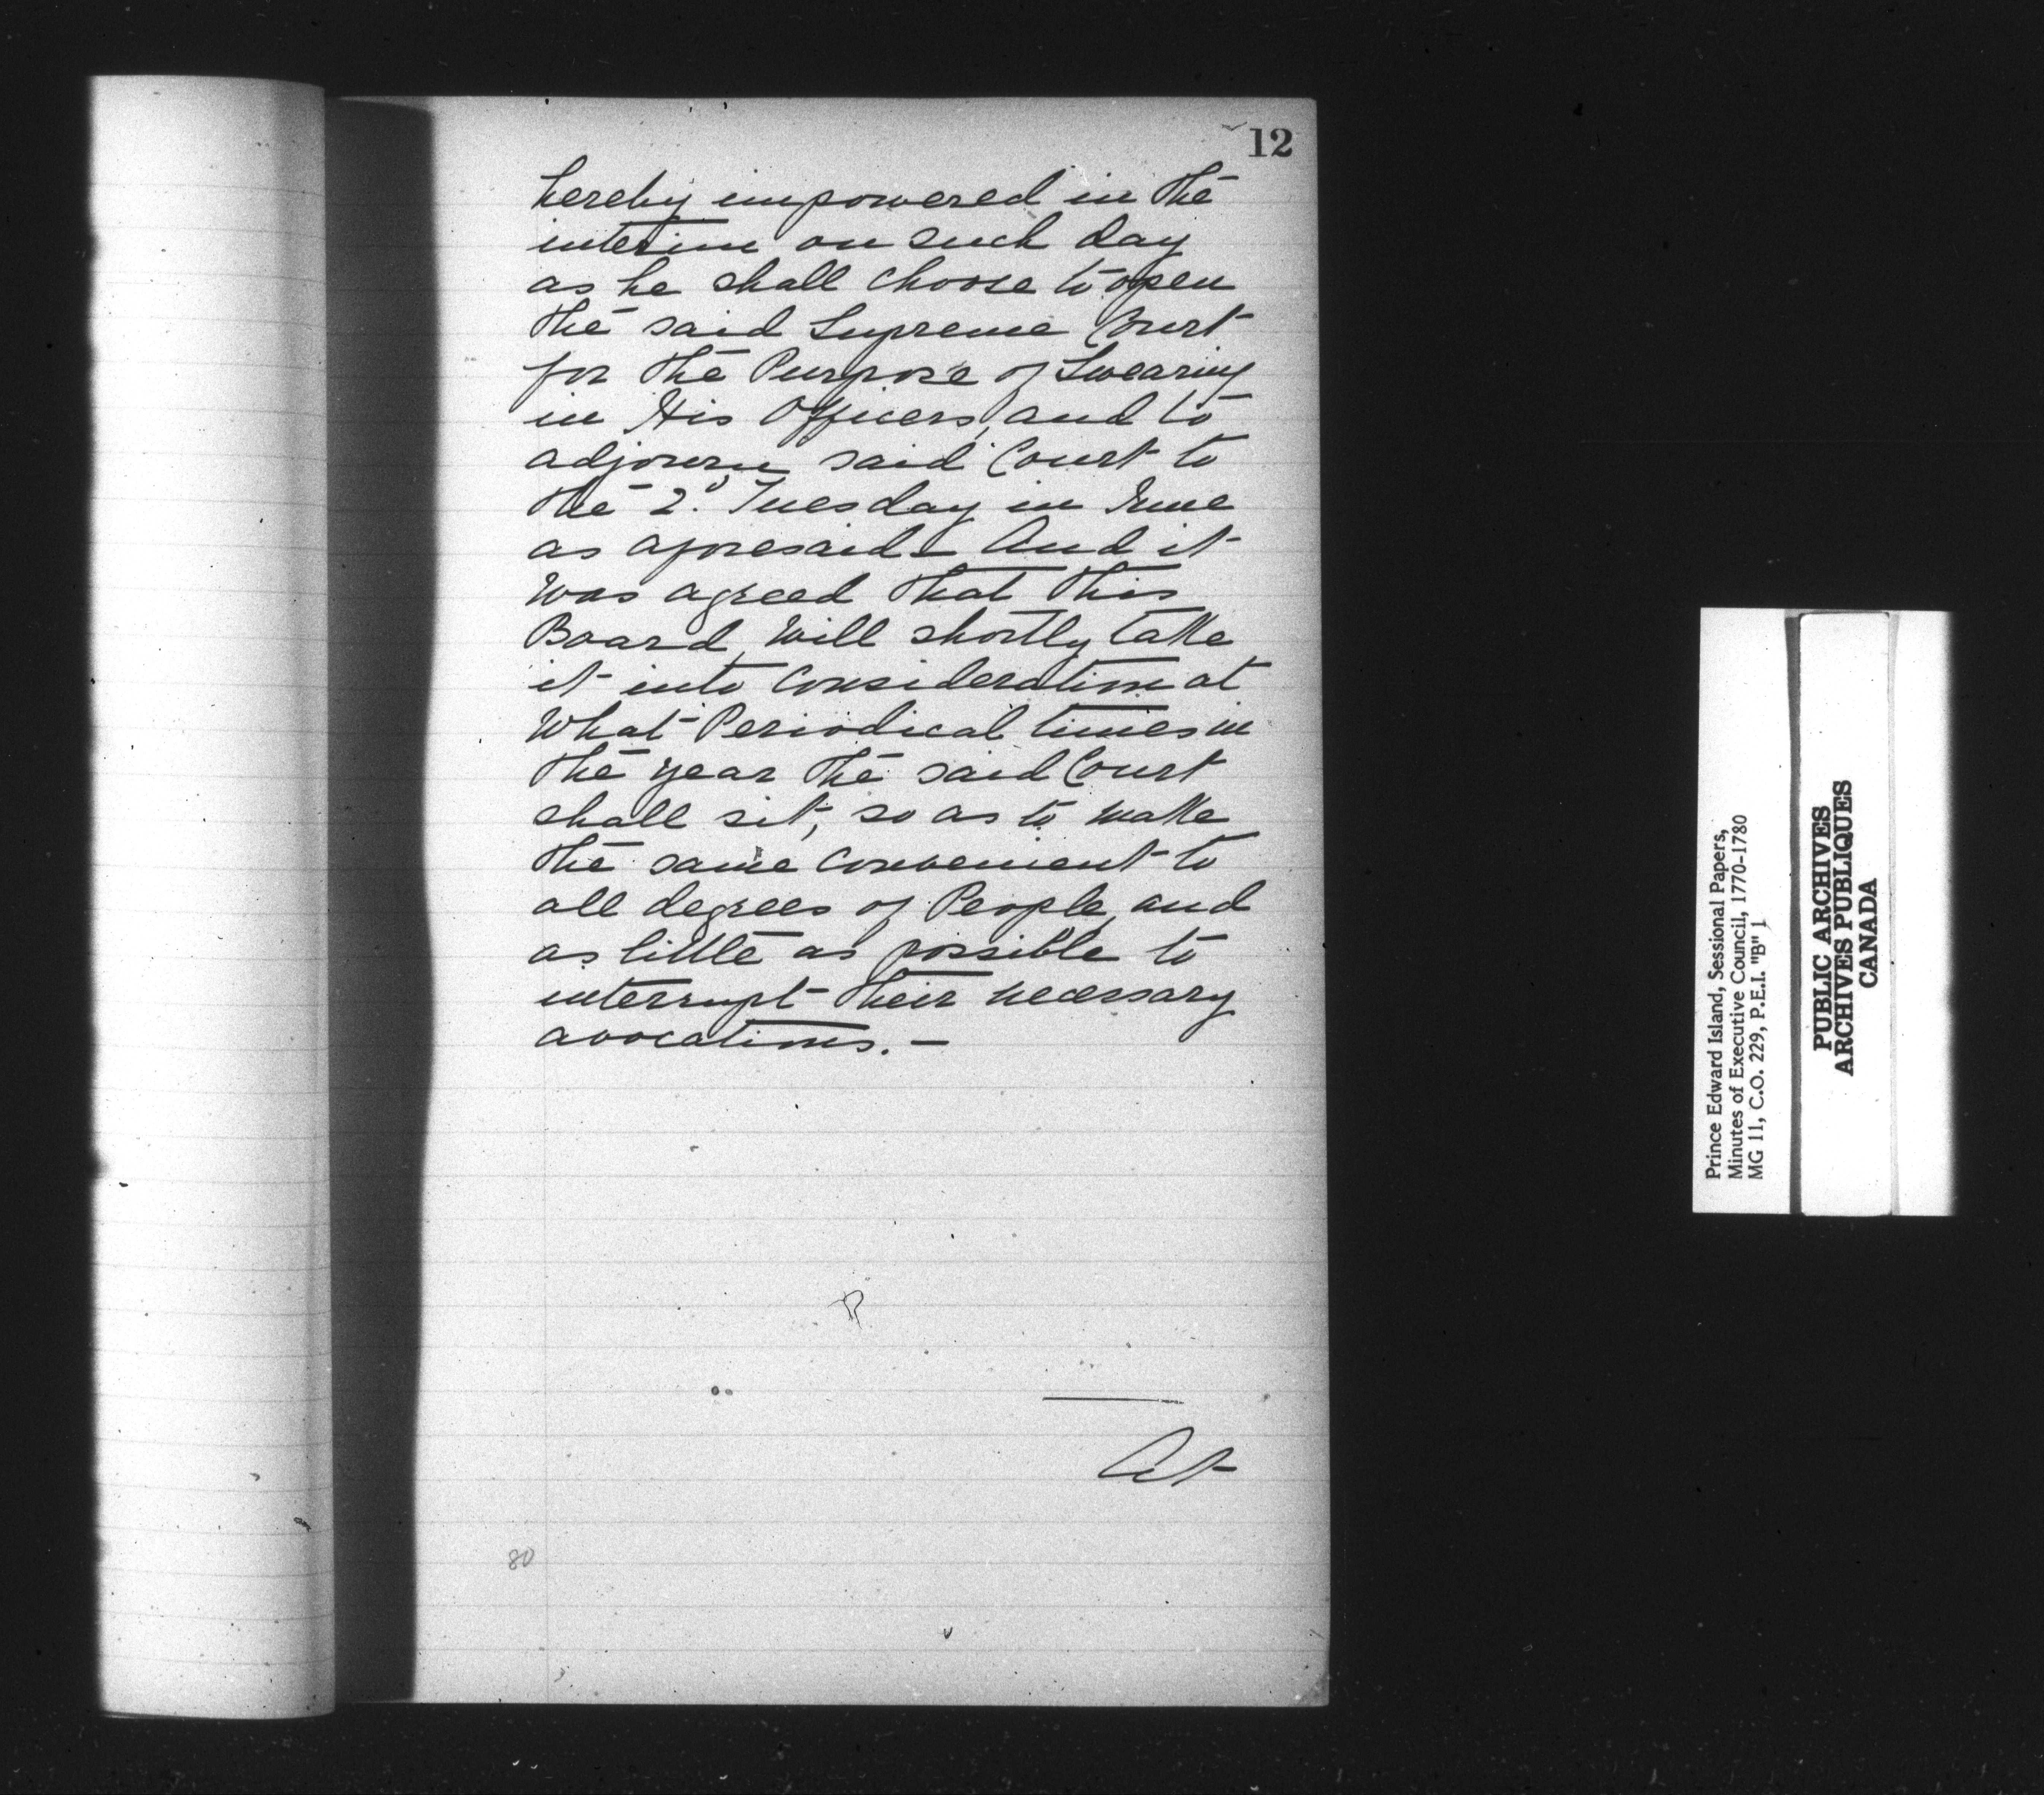 12
hereby impowered in the
interim on such day
as he shall choose to open
the said Supreme Court
for the Purpose of Swearing
in His Officers, and to
adjourn said Court to
the 2d. Tuesday in June
as aforesaid – And it
was agreed that this
Board, will shortly take
it into Consideration at
What Periodical times in
the year the said Court
shall sit, so as to make
the same convenient to
all degrees of People, and
as little as possible to
interrupt their necessary
avocations. –
At
80
Prince Edward Island, Sessional Papers,
Minutes of Executive Council, 1770-1780
MG 11, C.O. 229, P.E.I. "B" 1
PUBLIC ARCHIVES
ARCHIVES PUBLIQUES
CANADA